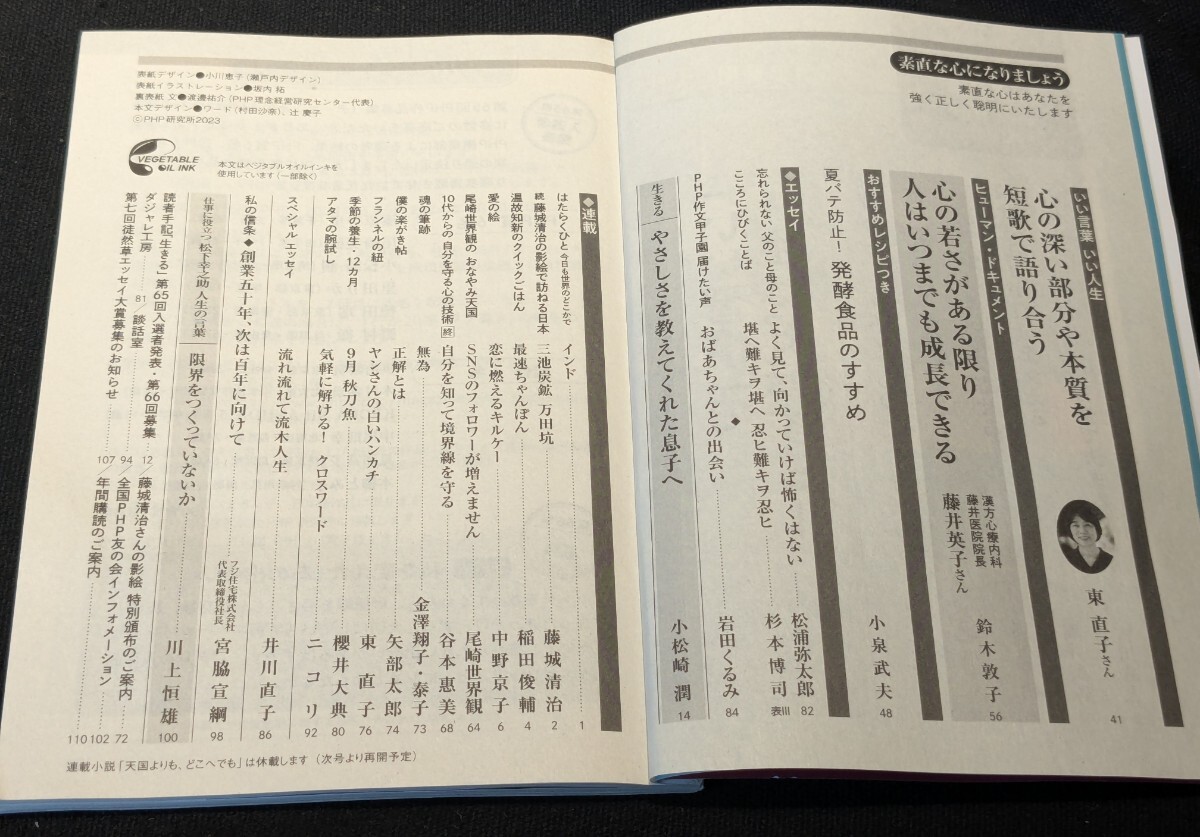 素直な心になりましょう
素直な心はあなたを
強く正しく聡明にいたします
いい言葉 いい人生
心の深い部分や本質を
短歌で語り合う
東 直子さん
41
ヒューマン・ドキュメント
心の若さがある限り
人はいつまでも成長できる
漢方心療内科
藤井医院院長
藤井英子さん
鈴木敦子
56
おすすめレシピつき
夏バテ防止！ 発酵食品のすすめ
小泉武夫
48
◆エッセイ
忘れられない 父のこと母のこと よく見て、向かっていけば怖くはない 松浦弥太郎 82
こころにひびくことば 堪ヘ難キヲ堪ヘ 忍ヒ難キヲ忍ヒ 杉本博司 表III
◆
PHP作文甲子園 届けたい声 おばあちゃんとの出会い 岩田くるみ 84
生きる やさしさを教えてくれた息子へ 小松崎 潤 14
◆連載
はたらくひと 今日も世界のどこかで インド 1
続 藤城清治の影絵で訪ねる日本 三池炭鉱 万田坑 藤城清治 2
温故知新のクイックごはん 最速ちゃんぽん 稲田俊輔 4
愛の絵 恋に燃えるキルケー 中野京子 6
尾崎世界観の おなやみ天国 SNSのフォロワーが増えません 尾崎世界観 64
10代からの 自分を守る心の技術 終 自分を知って境界線を守る 谷本惠美 68
魂の筆跡 無為 金澤翔子・泰子 73
僕の楽がき帖 正解とは 矢部太郎 74
フランネルの紐 ヤンさんの白いハンカチ 東 直子 76
季節の養生・12カ月 9月 秋刀魚 櫻井大典 80
アタマの腕試し 気軽に解ける！ クロスワード ニコリ 92
スペシャル エッセイ 流れ流れて流木人生 井川直子 86
私の信条◆創業五十年、次は百年に向けて フジ住宅株式会社 代表取締役社長 宮脇宣綱 98
仕事に役立つ 松下幸之助 人生の言葉 限界をつくっていないか 川上恒雄 100
読者手記「生きる」第65回入選者発表・第66回募集 12／藤城清治さんの影絵 特別頒布のご案内 72
ダジャレ工房 81／談話室 94／全国PHP友の会インフォメーション 102
第七回徒然草エッセイ大賞募集のお知らせ 107／年間購読のご案内 110
連載小説「天国よりも、どこへでも」は休載します（次号より再開予定）
表紙デザイン●小川恵子（瀬戸内デザイン）
表紙イラストレーション●坂内 拓
裏表紙 文●渡邊祐介（PHP理念経営研究センター代表）
本文デザイン●ワード（村田沙奈）、辻 慶子
©PHP研究所2023
VEGETABLE
OIL INK
本文はベジタブルオイルインキを
使用しています（一部除く）